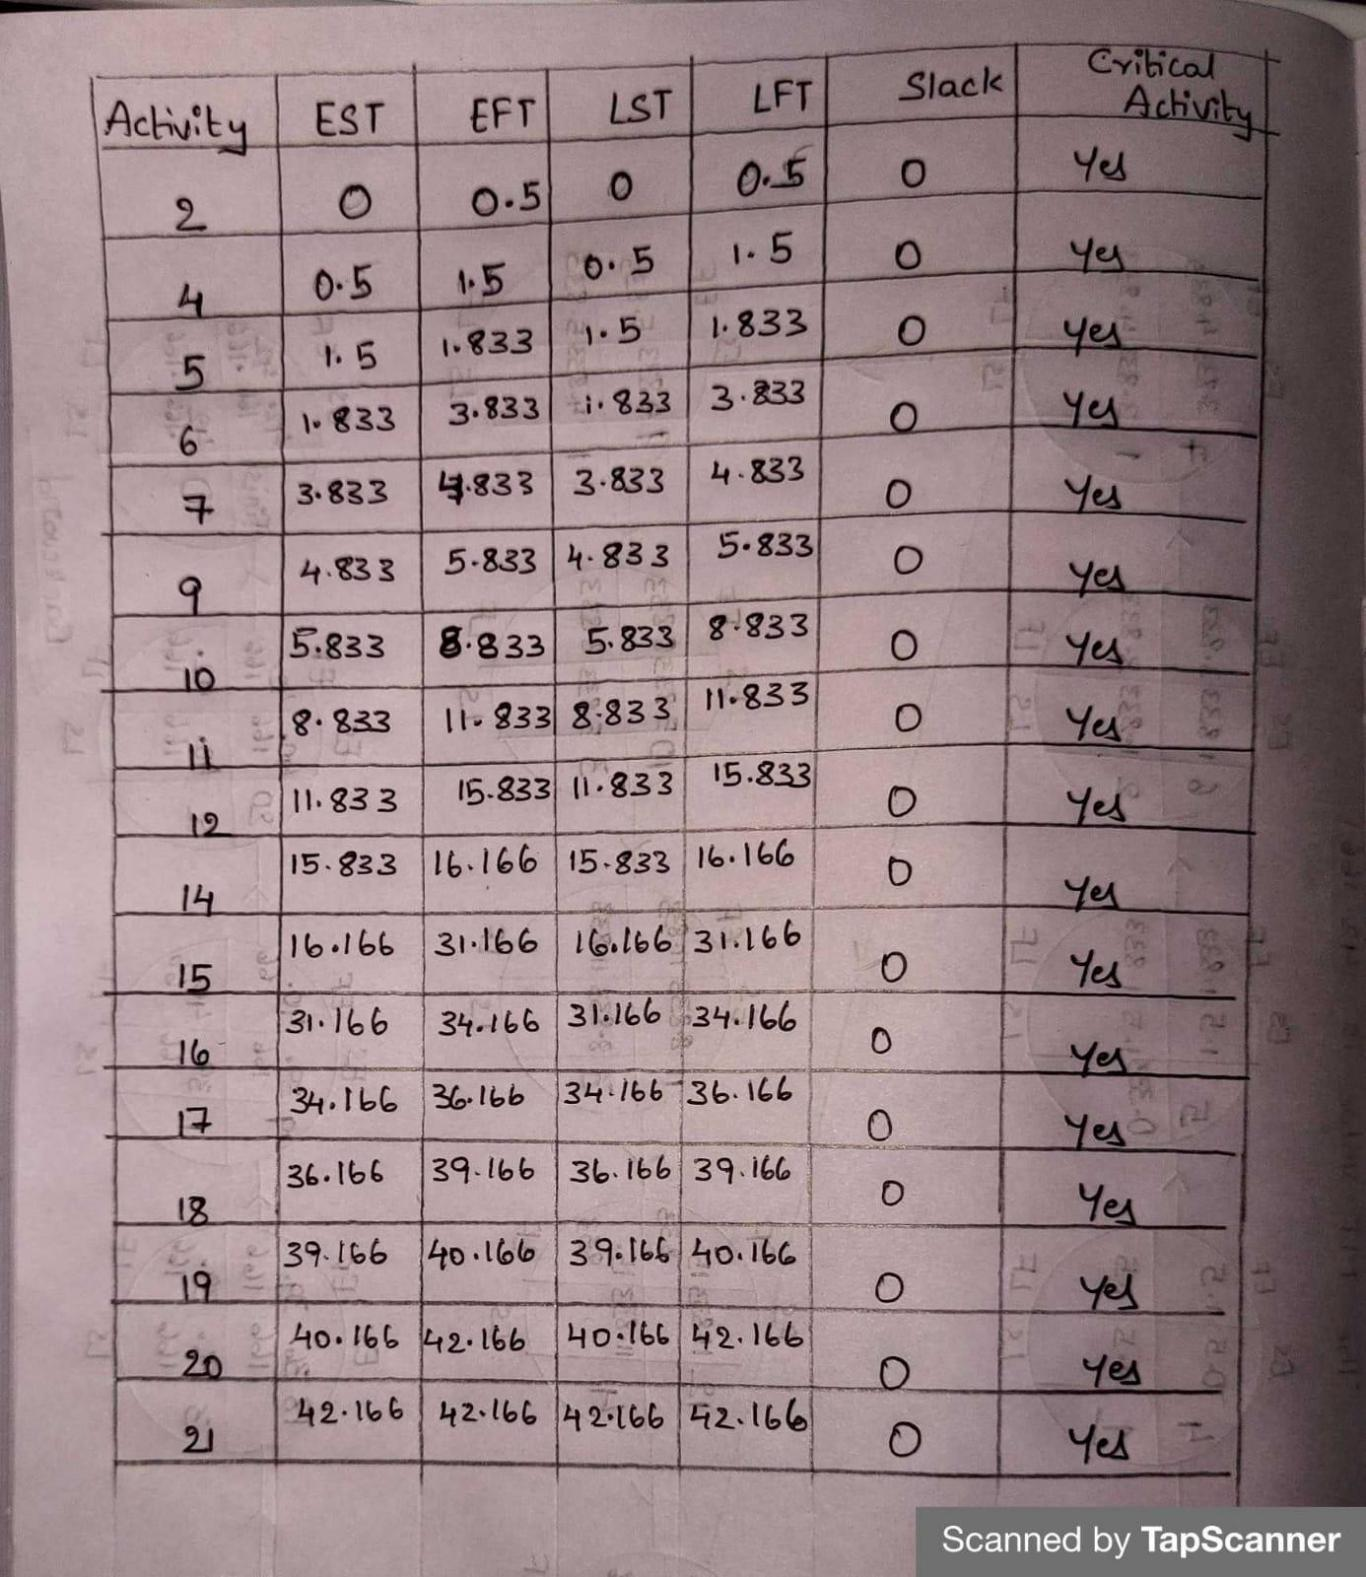 Activity EST EFT LST LFT Slack Critical Activity
2 0 0.5 0 0.5 0 Yes
4 0.5 1.5 0.5 1.5 0 Yes
5 1.5 1.833 1.5 1.833 0 Yes
6 1.833 3.833 1.833 3.833 0 Yes
7 3.833 4.833 3.833 4.833 0 Yes
9 4.833 5.833 4.833 5.833 0 Yes
10 5.833 8.833 5.833 8.833 0 Yes
11 8.833 11.833 8.833 11.833 0 Yes
12 11.833 15.833 11.833 15.833 0 Yes
14 15.833 16.166 15.833 16.166 0 Yes
15 16.166 31.166 16.166 31.166 0 Yes
16 31.166 34.166 31.166 34.166 0 Yes
17 34.166 36.166 34.166 36.166 0 Yes
18 36.166 39.166 36.166 39.166 0 Yes
19 39.166 40.166 39.166 40.166 0 Yes
20 40.166 42.166 40.166 42.166 0 Yes
21 42.166 42.166 42.166 42.166 0 Yes
Scanned by TapScanner